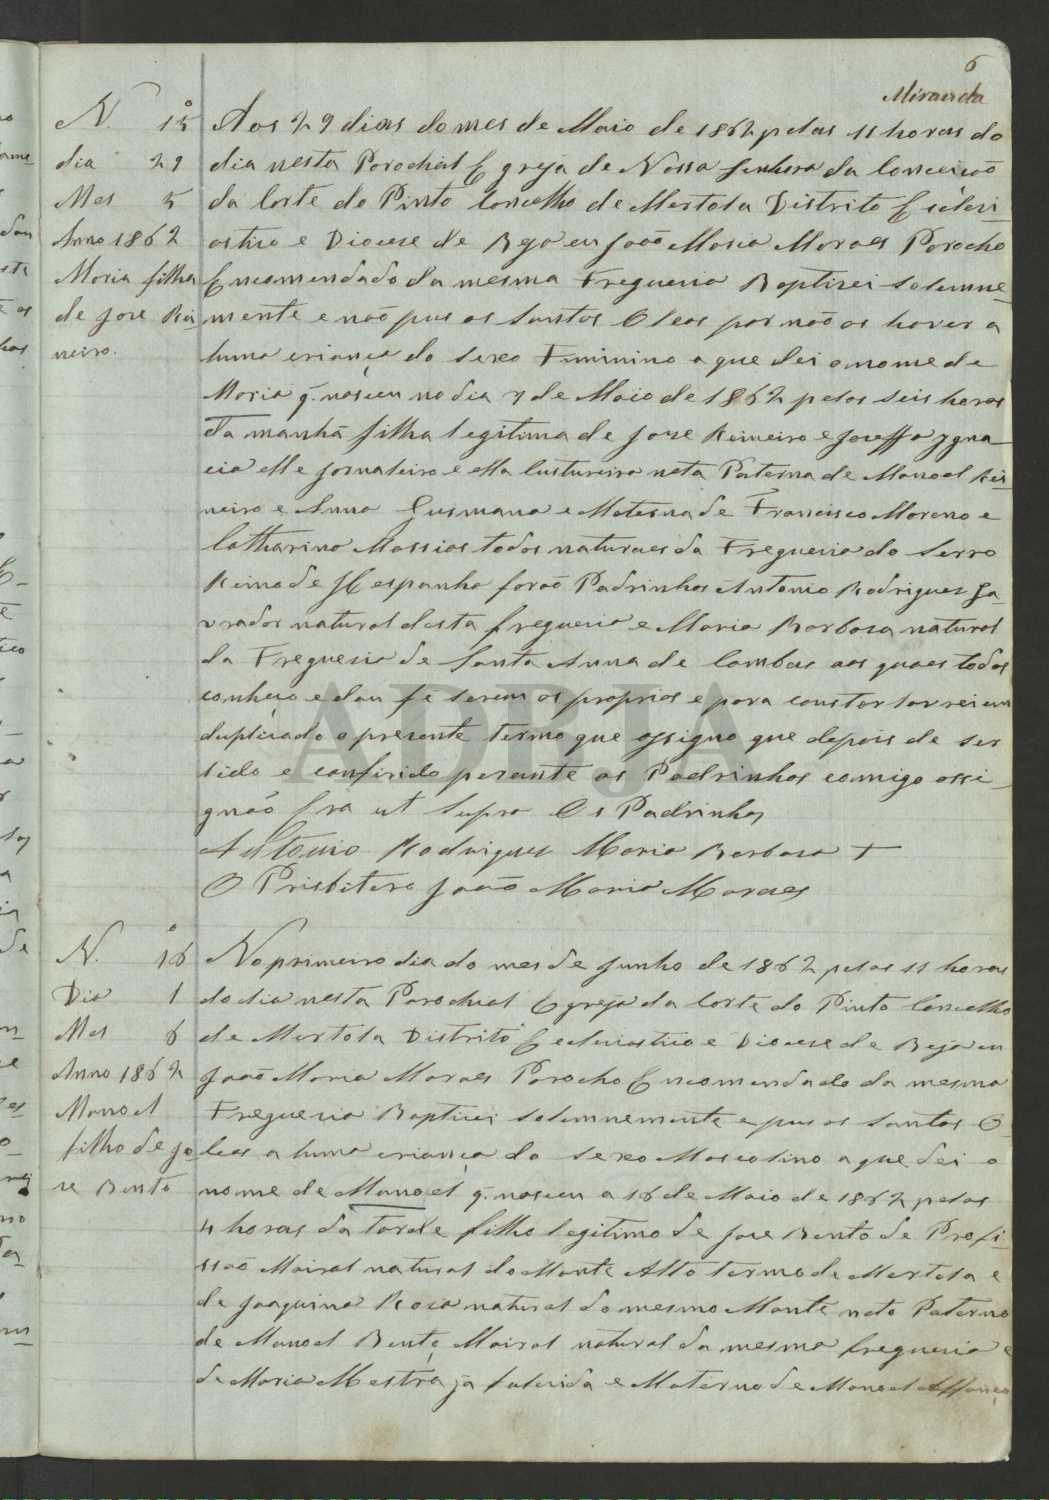 6
Miranda
N.º 15
dia 29
Mes 5
Anno 1862
Maria filha
de Jose Rei
neiro.
Aos 29 dias do mes de Maio de 1862 pelas 11 horas do
dia nesta Parochial Egreja de Nossa Senhora da Conceicaõ
da Corte do Pinto Concelho de Mertola Distrito Eclesi-
astico e Diocese de Beja eu Joaõ Maria Moraes Parocho
Encomendado da mesma Freguesia Baptizei solemne-
mente e naõ pus os Santos Oleos por naõ os haver a
huma criança do sexo Feminino a que dei o nome de
Maria q. nasceu no dia 7 de Maio de 1862 pelas seis horas
da manhã filha legitima de Jose Reineiro e Joseffa Ygna
cia elle Jornaleiro e ella Custureira neta Paterna de Manoel Rei-
neiro e Anna Gusmana e Materna de Francisco Moreno e
Catharina Massias todos naturaes da Freguesia do Serro
Reino de Hespanha foraõ Padrinhos Antonio Rodrigues La-
vrador natural desta freguesia e Maria Barbosa natural
da Freguesia de Santa Anna de Cambas aos quaes todos
conheço e dou fe serem os proprios e para constar lavrei em
duplicado o presente termo que assigno que depois de ser
lido e conferido perante os Padrinhos comigo assi-
gnaõ Era ut supra Os Padrinhos
Antonio Rodrigues Maria Barbosa +
O Prisbitero Joaõ Maria Moraes
N.º 16
Dia 1
Mes 6
Anno 1862
Manoel
filho de Jo
se Bento
No primeiro dia do mes de Junho de 1862 pelas 11 horas
do dia nesta Parochial Egreja da Corte do Pinto Concelho
de Mertola Distrito Eclesiastico e Diocese de Beja eu
Joaõ Maria Moraes Parocho Encomendado da mesma
Freguesia Baptizei solemnemente e pus os Santos O-
leos a huma criança do sexo Mascolino a que dei o
nome de Manoel q. nasceu a 16 de Maio de 1862 pelas
4 horas da tarde filho legitimo de Jose Bento de Profi-
ssaõ Maioral natural do Monte Alto termo de Mertola e
de Joaquina Rosa natural do mesmo Monte neto Paterno
de Manoel Bento Maioral natural da mesma freguesia e
de Maria Mestra ja falecida e Materno de Manoel Affonço
ADBJA